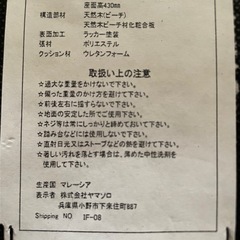 座面高430mm
構造部材 天然木(ビーチ)
天然木ビーチ材化粧合板
表面加工 ラッカー塗装
張材 ポリエステル
クッション材 ウレタンフォーム
取扱い上の注意
☆過大な重量をかけないで下さい。
☆偏った重量のかけ方を避けて下さい。
☆前後左右に揺すらないで下さい。
☆地面の安定した所でご使用下さい。
☆ネジ等は常にしっかりと締めておいて下さい。
☆踏み台などには使用しないで下さい。
☆直射日光又はストーブなどの熱を避けて下さい。
☆著しい汚れを落とす場合は、薄めた中性洗剤を
使用して下さい。
生産国 マレーシア
表示者 株式会社ヤマソロ
兵庫県小野市下来住町887
Shipping NO IF-08